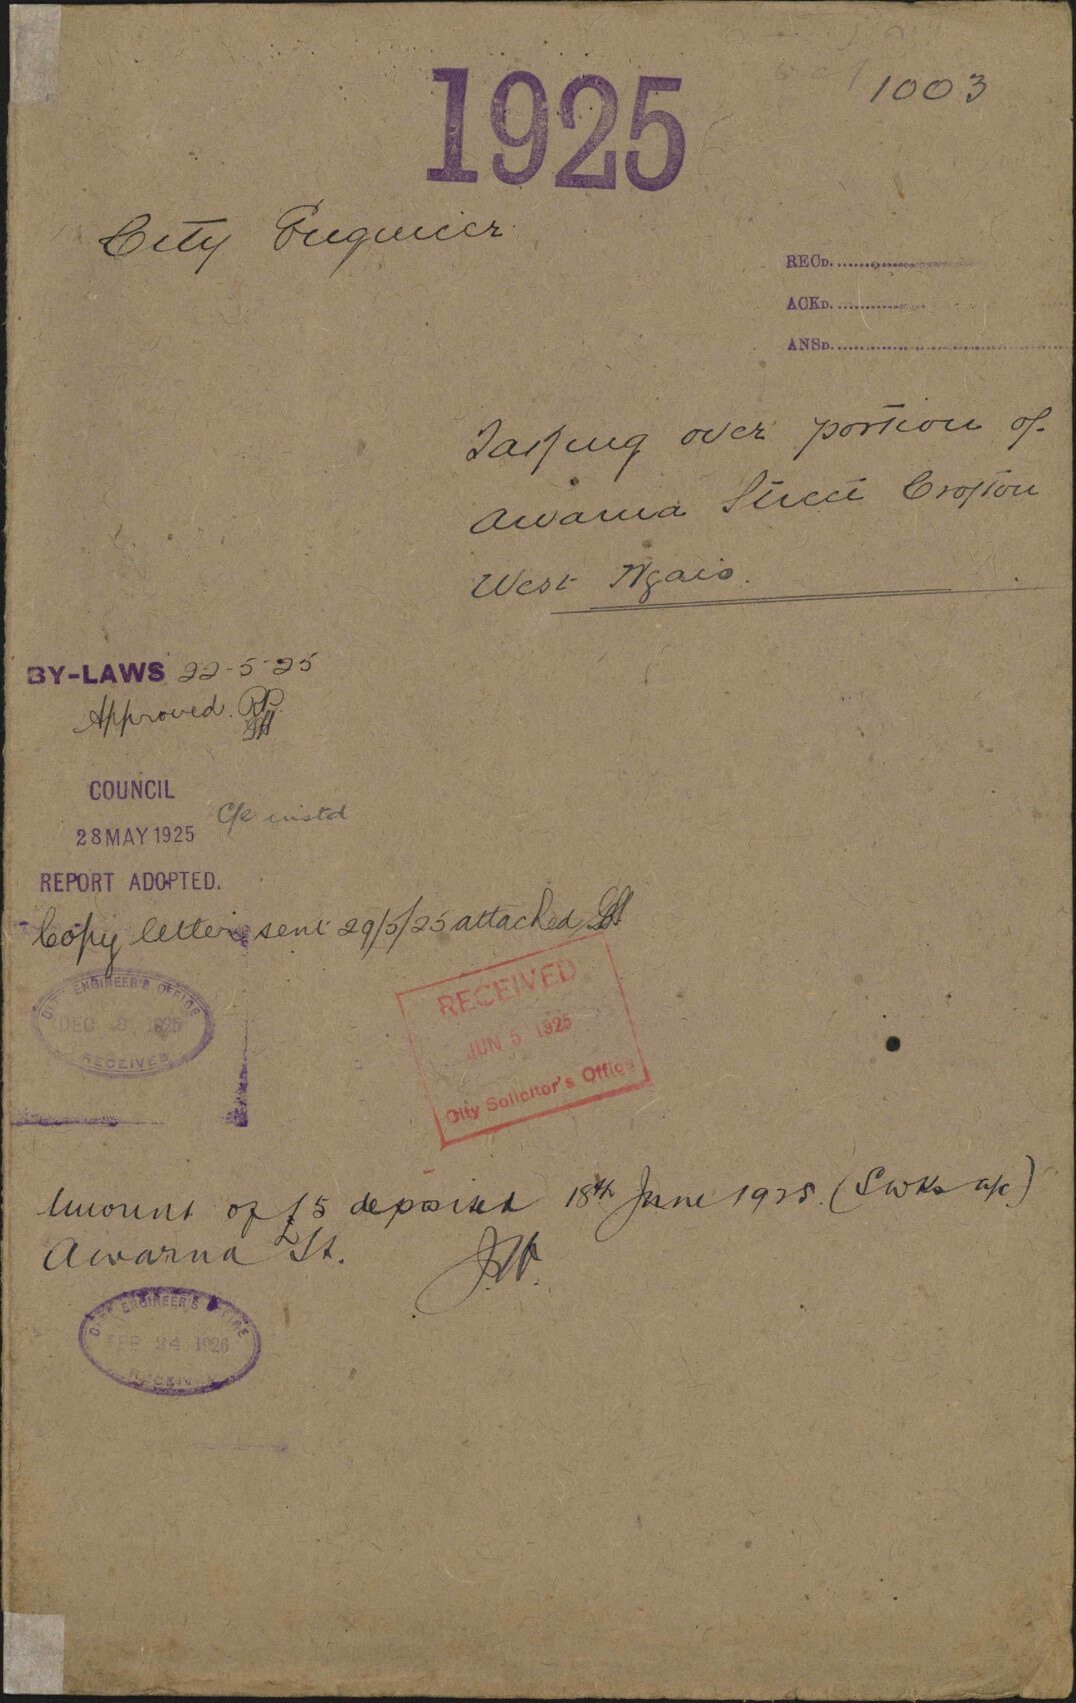 1925
1003
City Engineer
RECD.
ACKD.
ANSD.
Taking over portion of
Awarua Street Crofton
West Ngaio.
BY-LAWS 22-5-25
Approved.
COUNCIL
C/E instd
28 MAY 1925
REPORT ADOPTED.
Copy letter sent 29/5/25 attached
CITY ENGINEER'S OFFICE
DEC 1925
RECEIVED
RECEIVED
JUN 5 1925
City Solicitor's Office
Amount of £5 deposited 18th June 1925. (Swks a/c)
Awarua St.
CITY ENGINEER'S OFFICE
FEB 24 1926
RECEIVED